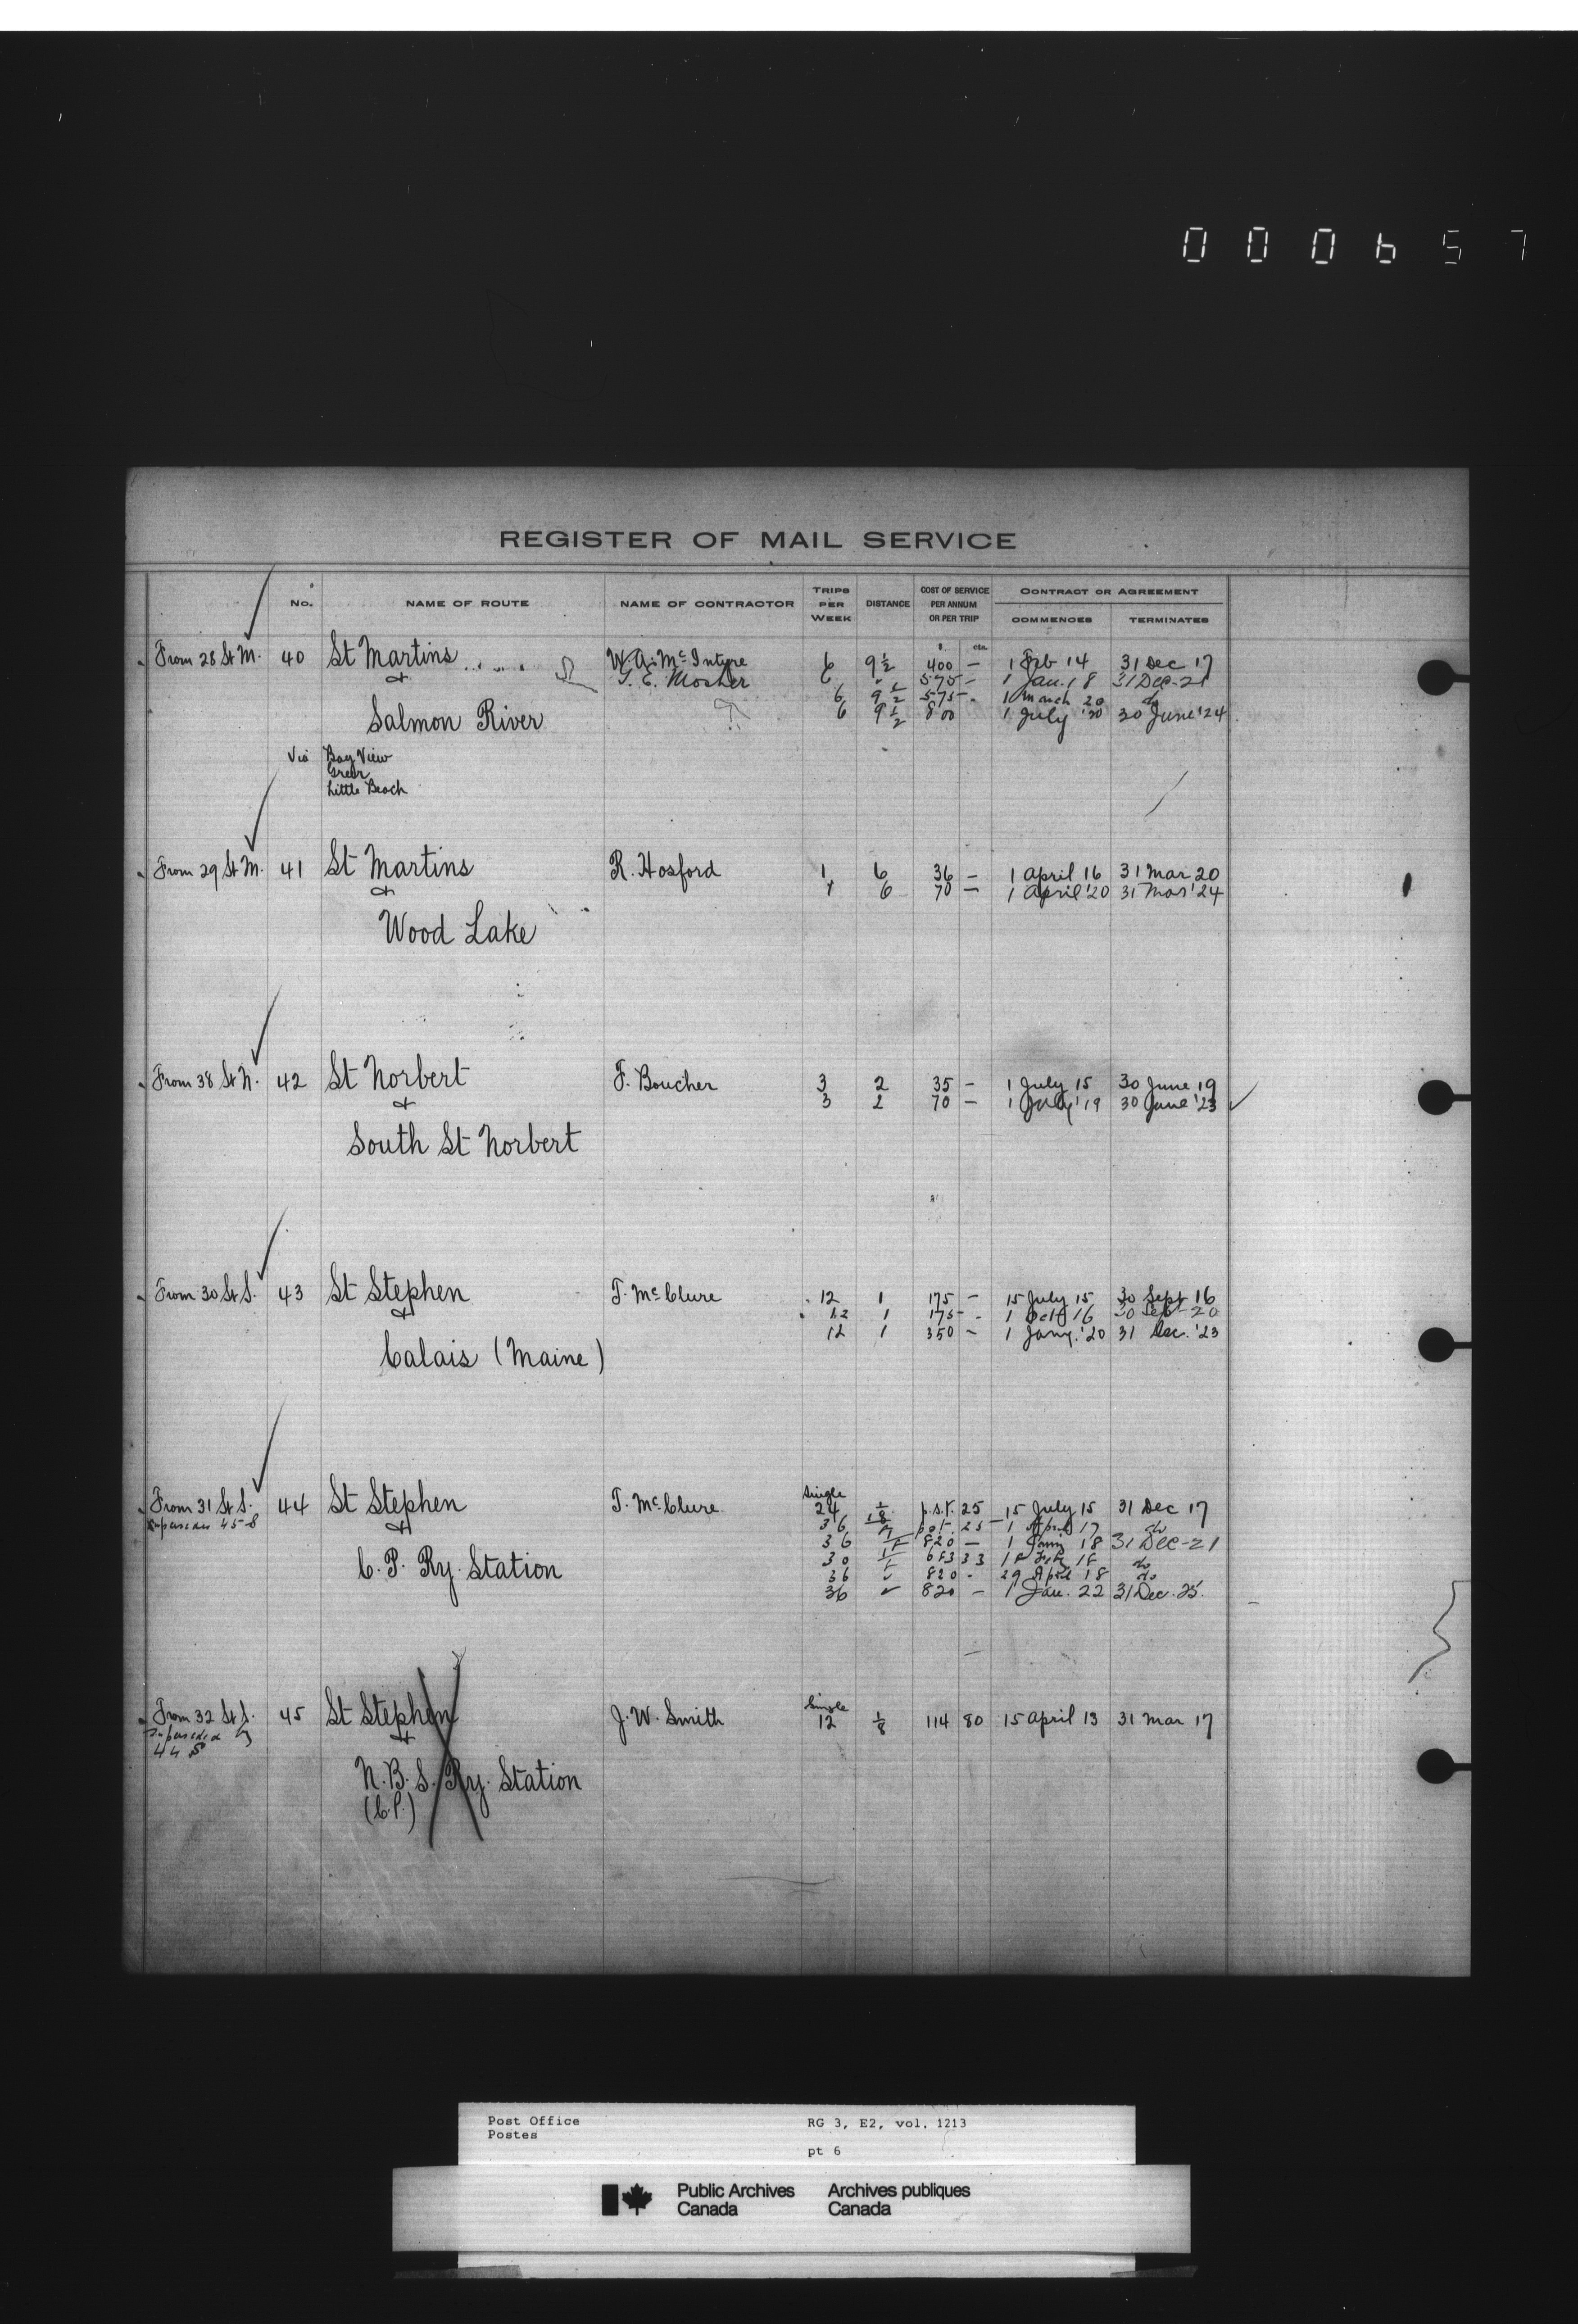 000657
REGISTER OF MAIL SERVICE
No. NAME OF ROUTE NAME OF CONTRACTOR TRIPS PER WEEK DISTANCE COST OF SERVICE PER ANNUM OR PER TRIP CONTRACT OR AGREEMENT COMMENCES TERMINATES
$ cts.
From 28 St M. 40 St Martins W. A. McIntyre 6 9 1/2 400 — 1 Feb 14 31 Dec 17
& T. E. Mosher 6 " 575 — 1 Jan. 18 31 Dec-21
6 9 1/2 575 - 1 March 20 do
Salmon River 6 9 1/2 800 1 July '20 30 June '24
Via Bay View
Greer
Little Beach
From 29 St M. 41 St Martins R. Hosford 1 6 36 — 1 April 16 31 Mar 20
& 1 6 70 — 1 April '20 31 Mar '24
Wood Lake
From 38 St N. 42 St Norbert F. Boucher 3 2 35 — 1 July 15 30 June 19
& 3 2 70 — 1 July '19 30 June '23
South St Norbert
From 30 St S. 43 St Stephen T. McClure 12 1 175 — 15 July 15 30 Sept 16
& 12 1 175 - 1 Oct 16 30 Sept-20
12 1 350 — 1 Jany. '20 31 Dec. '23
Calais (Maine)
Single
From 31 St S. 44 St Stephen T. McClure 24 1/8 p.s.t. 25 15 July 15 31 Dec 17
Supersedes 45-8 & 36 25 1 April 17 do
36 1/8 820 — 1 Jany 18 31 Dec-21
C. P. Ry. Station 30 1/8 683 33 18 Feb 18 do
36 " 820 - 29 April 18 do
36 " 820 — 1 Jan. 22 31 Dec. 25.
Single
From 32 St S. 45 St Stephen J. W. Smith 12 1/8 114 80 15 April 13 31 Mar 17
Superseded by &
44 S
N. B. S. Ry. Station
(C.P.)
Post Office RG 3, E2, vol. 1213
Postes
pt 6
Public Archives Archives publiques
Canada Canada